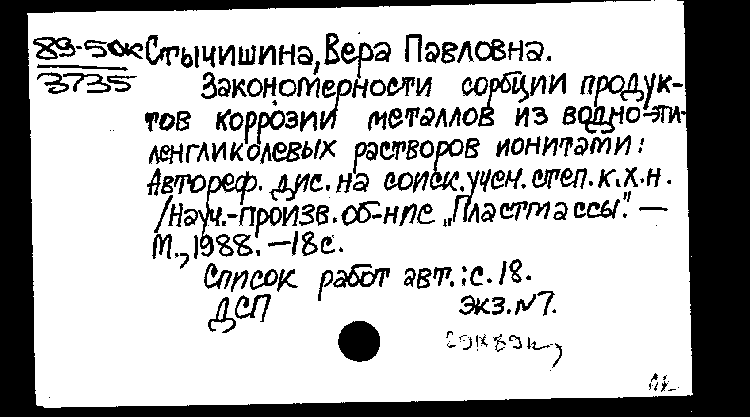 89-50к Стычишина, Вера Павловна.
3735 Закономерности сорбции продук-
тов коррозии металлов из водно-эти-
ленгликолевых растворов ионитами:
Автореф. дис. на соиск. учен. степ. к.х.н.
/Науч.-произв. об-ние „Пластмассы". —
М., 1988. — 18 с.
Список работ авт.: с. 18.
ДСП экз. №7.